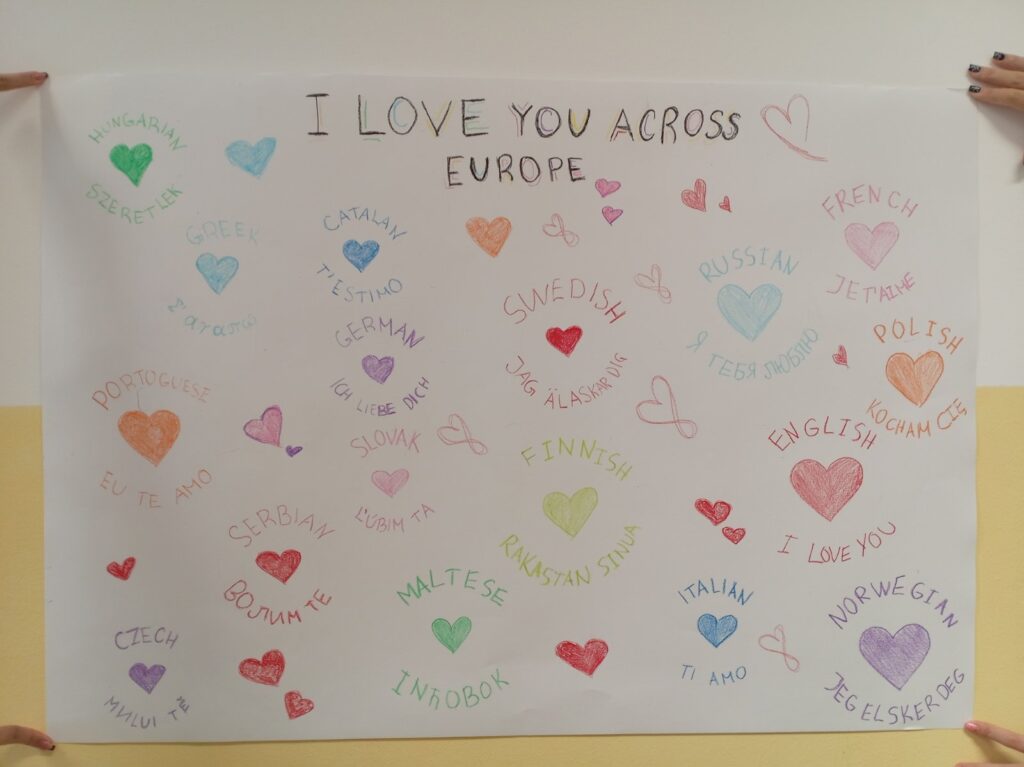 I LOVE YOU ACROSS
EUROPE
HUNGARIAN
SZERETLEK
GREEK
Σ'αγαπώ
CATALAN
T'ESTIMO
FRENCH
JE T'AIME
RUSSIAN
Я ТЕБЯ ЛЮБЛЮ
SWEDISH
JAG ÄLASKAR DIG
GERMAN
ICH LIEBE DICH
POLISH
KOCHAM CIĘ
PORTOGUESE
EU TE AMO
SLOVAK
ĽÚBIM TA
FINNISH
RAKASTAN SINUA
ENGLISH
I LOVE YOU
SERBIAN
ВОЛИМ ТЕ
MALTESE
INĦOBOK
ITALIAN
TI AMO
NORWEGIAN
JEG ELSKER DEG
CZECH